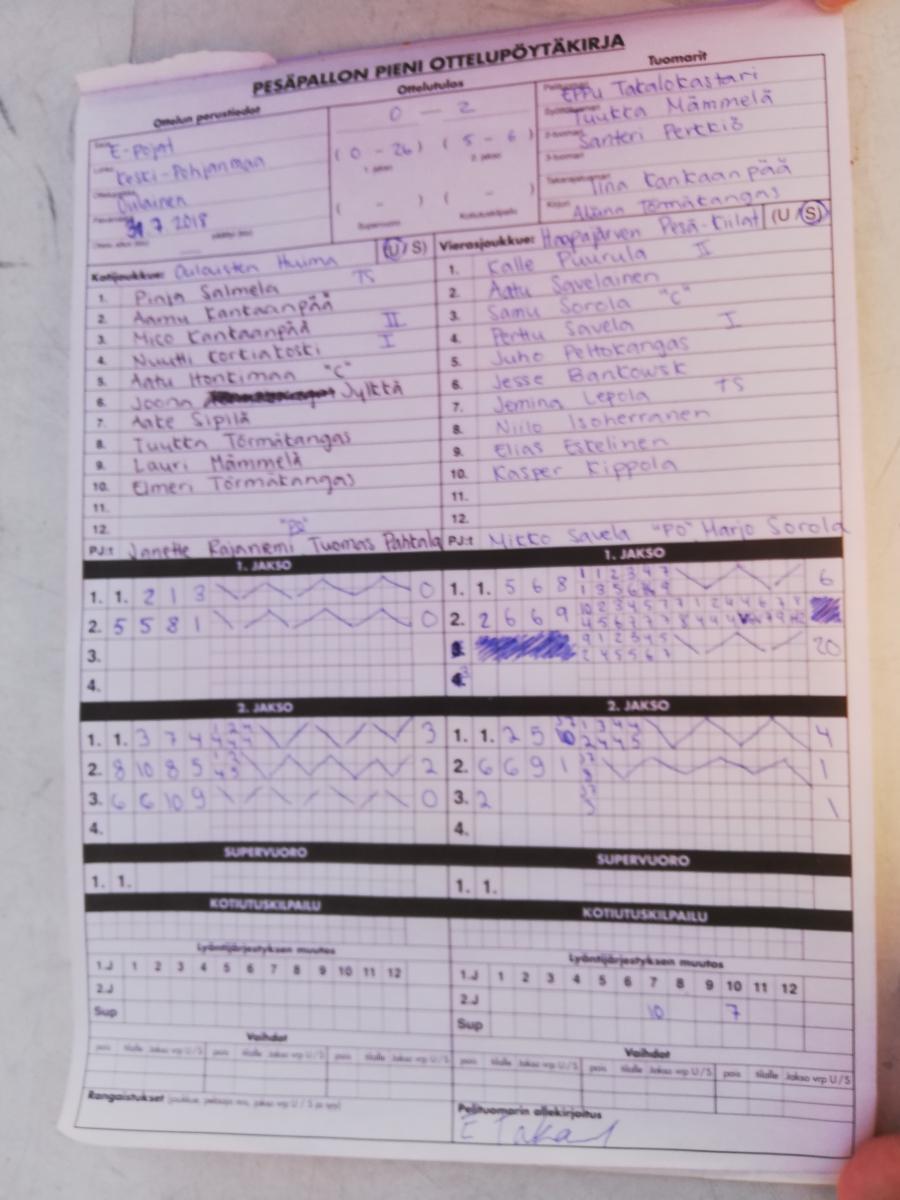 PESÄPALLON PIENI OTTELUPÖYTÄKIRJA
Ottelun perustiedot
Ottelutulos
Tuomarit
E-pojat
Keski-Pohjanmaa
Oulainen
31.7.2018
0 - 2
(0 - 26) (5 - 6)
1. jakso 2. jakso
( - ) ( - )
Supervuoro Kotiutuskilpailu
Eppu Takalokastari
Tuukka Mämmelä
Santeri Perkkiö
Tiina Kankaanpää
Törmäkangas
Kotijoukkue: Oulaisten Huima (U/S)
1. Pinja Salmela TS
2. Aamu Kankaanpää
3. Mico Kankaanpää II
4. Nuutti Kortiakoski I
5. Aatu Honkimaa "C"
6. Joona Jylkkä
7. Aake Sipilä
8. Tuukka Törmäkangas
9. Lauri Mämmelä
10. Elmeri Törmäkangas
11.
12.
PJ:t Janette Rajaniemi "PO" Tuomas Pahtala
Vierasjoukkue: Haapajärven Pesä-Kiilat (U/S)
1. Kalle Puurula II
2. Aatu Savelainen
3. Samu Sorola "C"
4. Perttu Savela I
5. Juho Peltokangas
6. Jesse Bankowsk
7. Jemina Lepola TS
8. Niilo Isoherranen
9. Elias Estelinen
10. Kasper Kippola
11.
12.
PJ:t Mikko Savela "PO" Marjo Sorola
1. JAKSO
1. 1. 2 1 3 0
2. 5 5 8 1 0
3.
4.
1. JAKSO
1. 1. 5 6 8 6
2. 2 6 6 9
20
2. JAKSO
1. 1. 3 7 4 3
2. 8 10 8 5 2
3. 6 6 10 9 0
4.
2. JAKSO
1. 1. 2 5 4
2. 6 6 9 1 1
3. 2 1
4.
SUPERVUORO
1. 1.
SUPERVUORO
1. 1.
KOTIUTUSKILPAILU
KOTIUTUSKILPAILU
Lyöntijärjestyksen muutos
1.J 1 2 3 4 5 6 7 8 9 10 11 12
2.J
Sup
Lyöntijärjestyksen muutos
1.J 1 2 3 4 5 6 7 8 9 10 11 12
2.J 10 7
Sup
Vaihdot
pois tilalle Jakso vrp U/S pois tilalle Jakso vrp U/S pois tilalle Jakso vrp U/S
Vaihdot
pois tilalle Jakso vrp U/S pois tilalle Jakso vrp U/S pois tilalle Jakso vrp U/S
Rangaistukset
Pelituomarin allekirjoitus